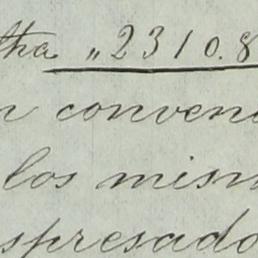 tha „ 2310.8
n conven
los mism
spresado